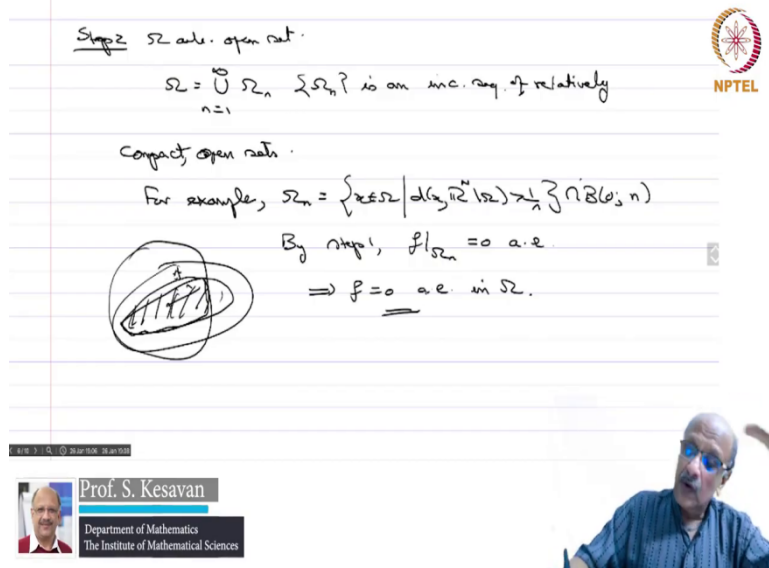 Step 2 Ω arb. open set.
NPTEL
Ω = ∪_{n=1}^{∞} Ω_n {Ω_n} is an inc. seq. of relatively
compact, open sets.
For example, Ω_n = {x∈Ω | d(x, ℝ^N\Ω) > 1/n} ∩ B(0; n)
By step 1, f|_{Ω_n} = 0 a.e.
⟹ f = 0 a.e. in Ω.
6/15
26 Jan 15:06 26 Jan 15:08
Prof. S. Kesavan
Department of Mathematics
The Institute of Mathematical Sciences